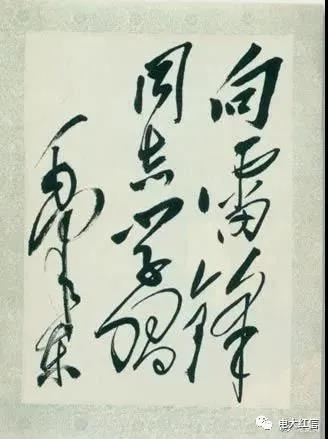 向雷锋
同志学习
毛泽东
电大红信